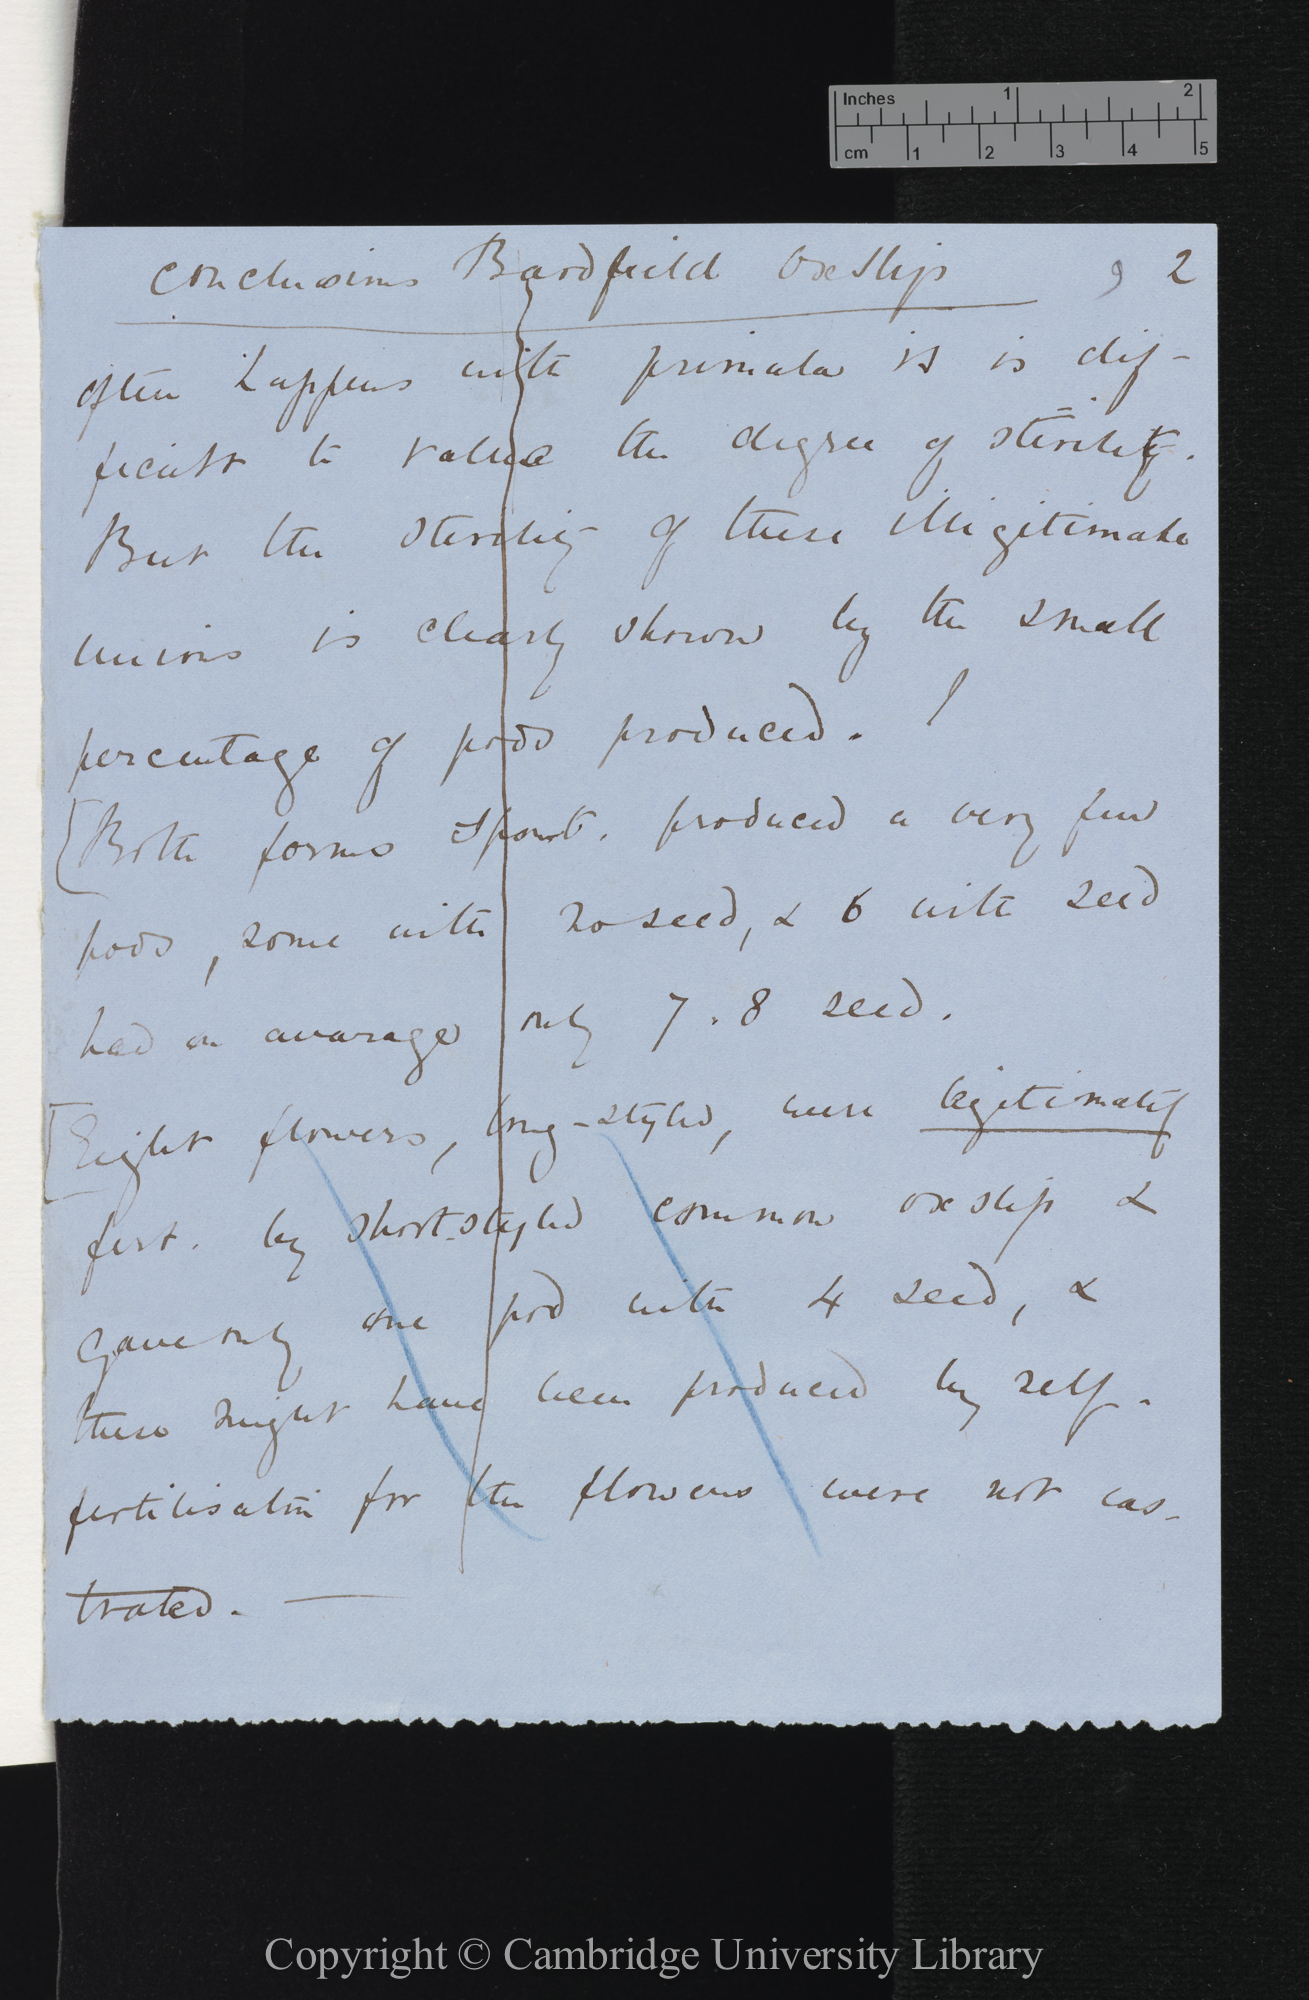 Inches 1 2
cm 1 2 3 4 5
Conclusions Bardfield Oxslip 9 2
often happens with primula it is dif-
ficult to value the degree of sterility.
But the sterility of these illigitimate
unions is clearly shown by the small
percentage of pods produced.
[Both forms spont. produced a very few
pods, some with no seed, & 6 with seed
had on avarage only 7.8 seed.
[Eight flowers, long-styled, were legitimately
fert. by short-styled common oxslip &
gave only one pod with 4 seed, &
these might have been produced by self-
fertilisation for the flowers were not cas-
trated. —
Copyright © Cambridge University Library